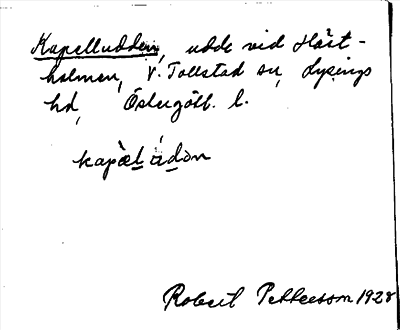 Kapelludden, udde vid Häst-
holmen, V. Tollstad sn, Lysings
hd, Östergötl. l.
kapèl ùdən
Robert Pettersson 1928